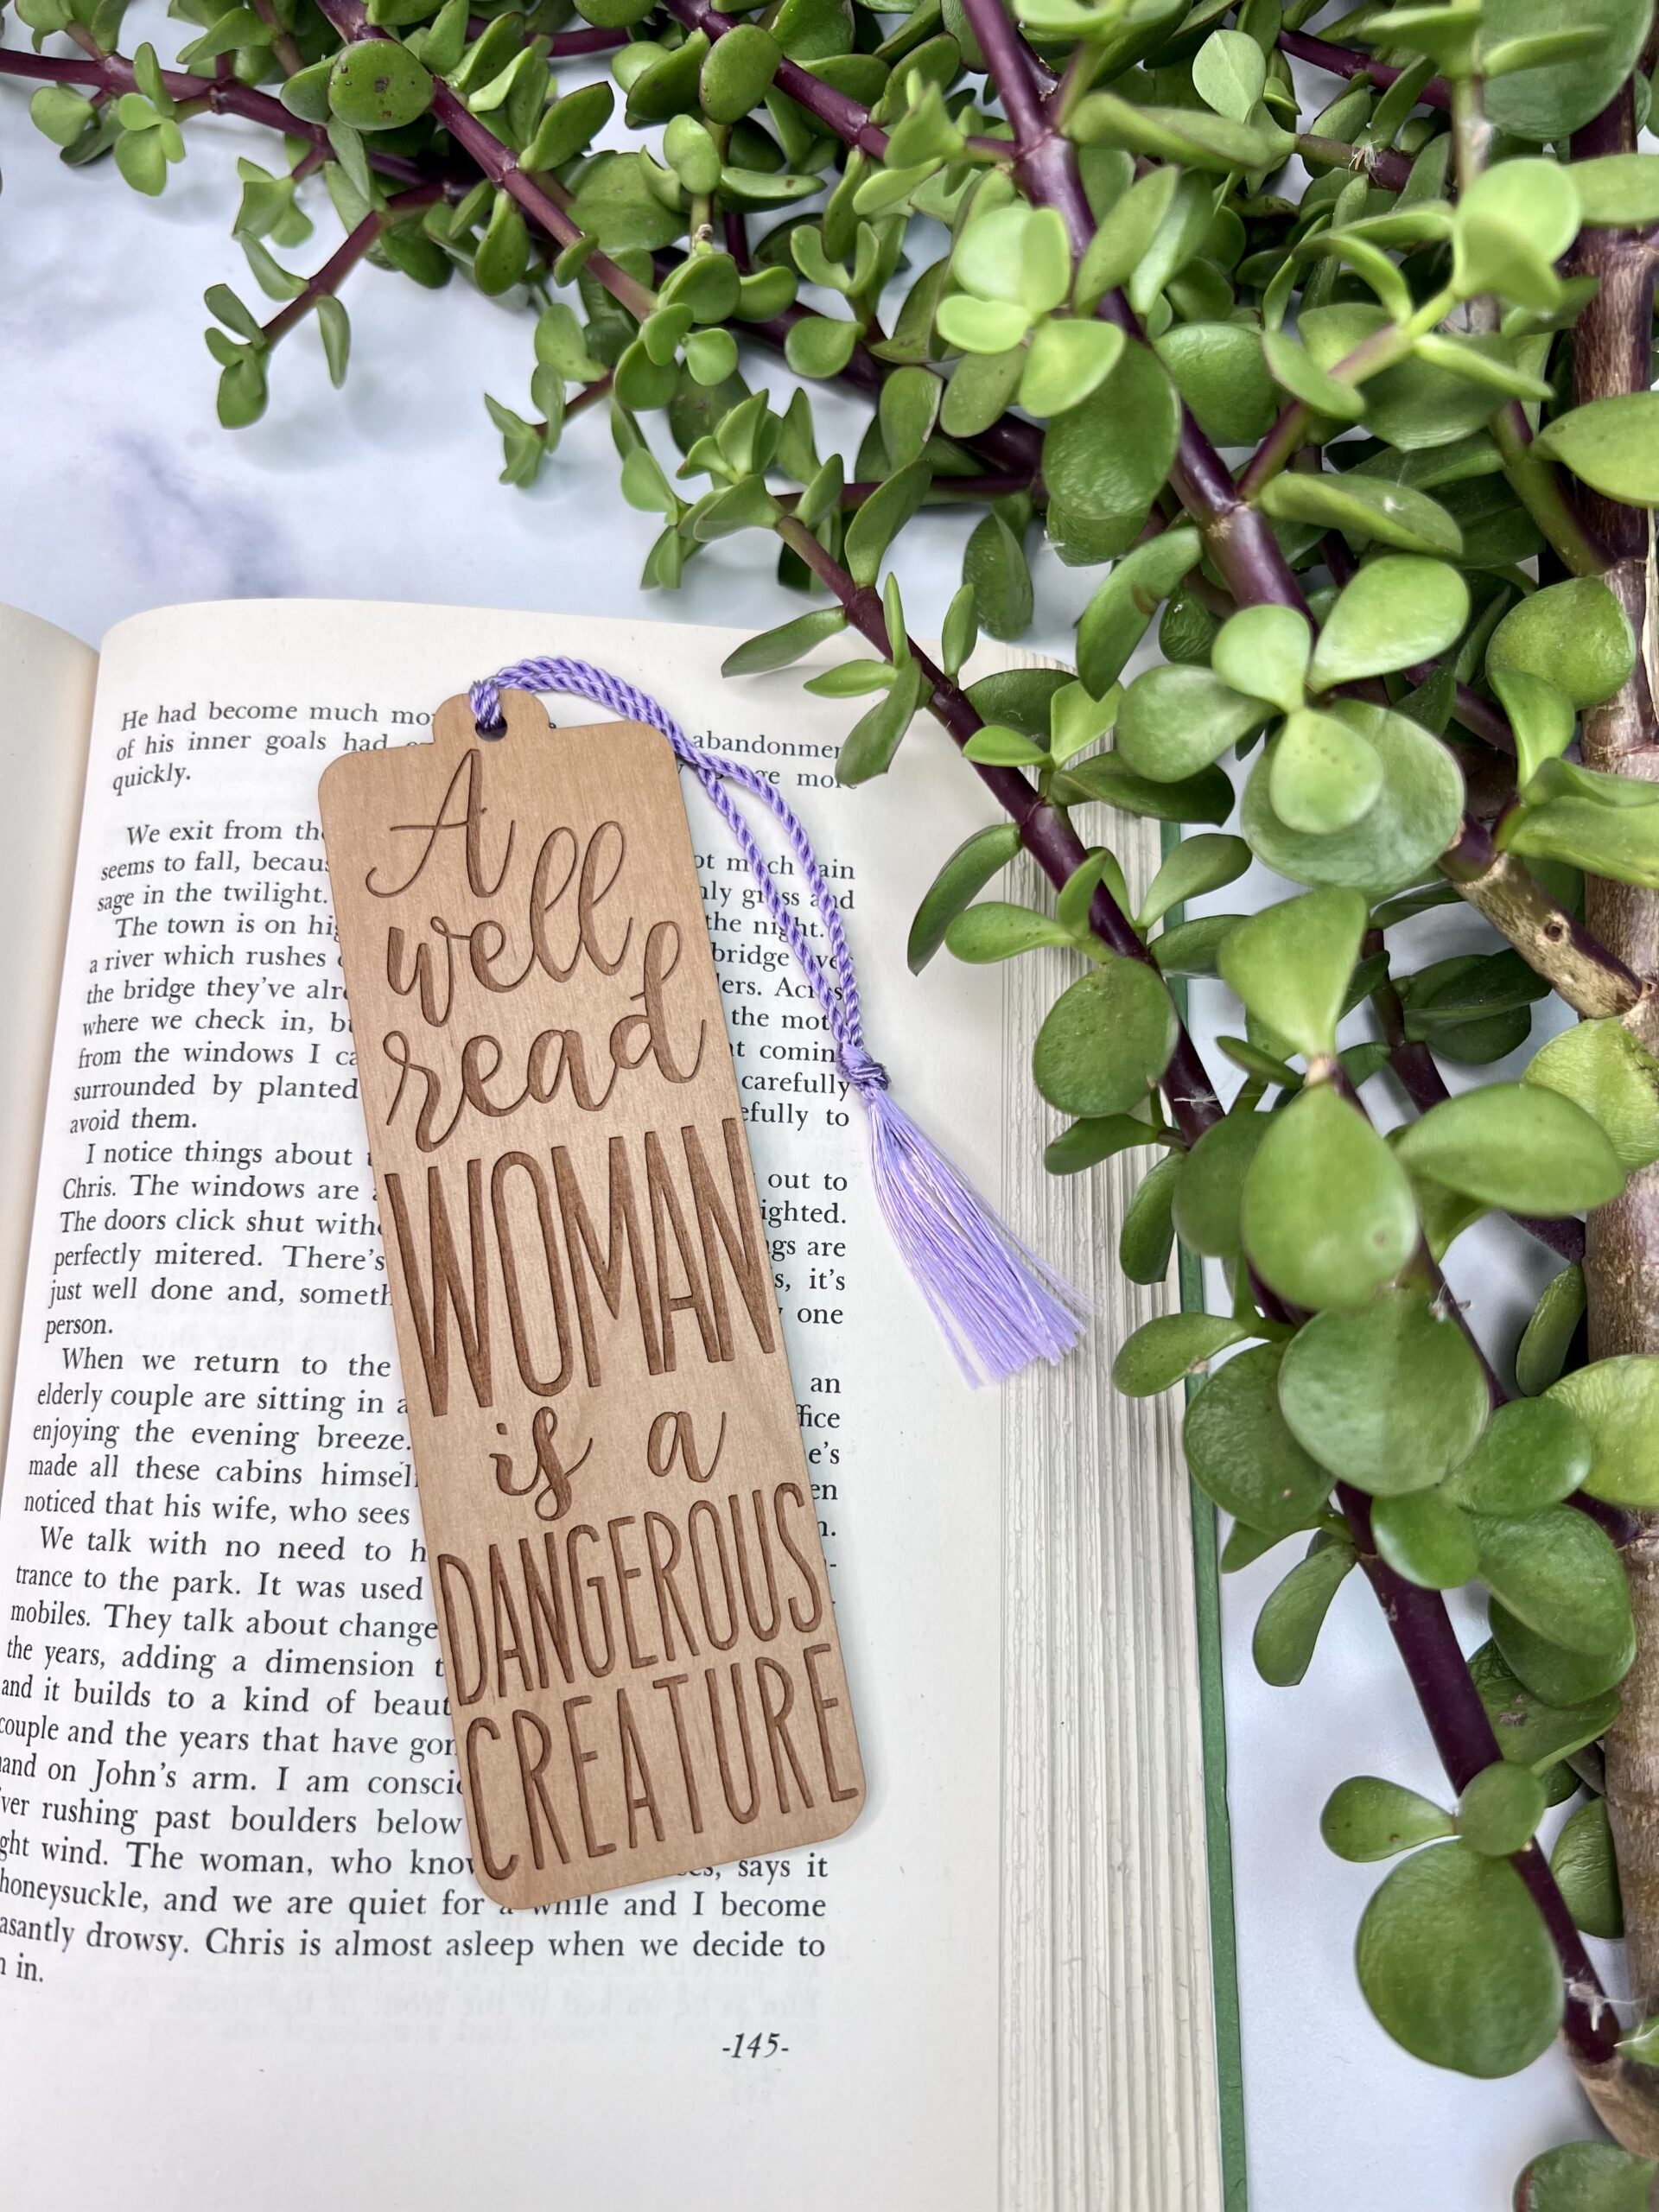 He had become much
of his inner goals had
abandonmen
quickly.
more
We exit from the
seems to fall, becaus
much ain
sage in the twilight.
grass and
The town is on
the night.
a river which rushes
bridge
the bridge they've
where we check in,
the
from the windows I
surrounded by planted
carefully
avoid them.
to
I notice things about
out to
Chris. The windows are
The doors click shut
perfectly mitered. There's
are
just well done and,
it's
person.
one
When we return to the
an
elderly couple are sitting in a
enjoying the evening breeze.
made all these cabins
noticed that his wife, who sees
We talk with no need to
trance to the park. It was used
mobiles. They talk about change
the years, adding a dimension
and it builds to a kind of
couple and the years that have
on John's arm. I am
rushing past boulders below
wind. The woman, who
says it
honeysuckle, and we are quiet for a while and I become
asantly drowsy. Chris is almost asleep when we decide to
in.
-145-
A
well
read
WOMAN
is a
DANGEROUS
CREATURE